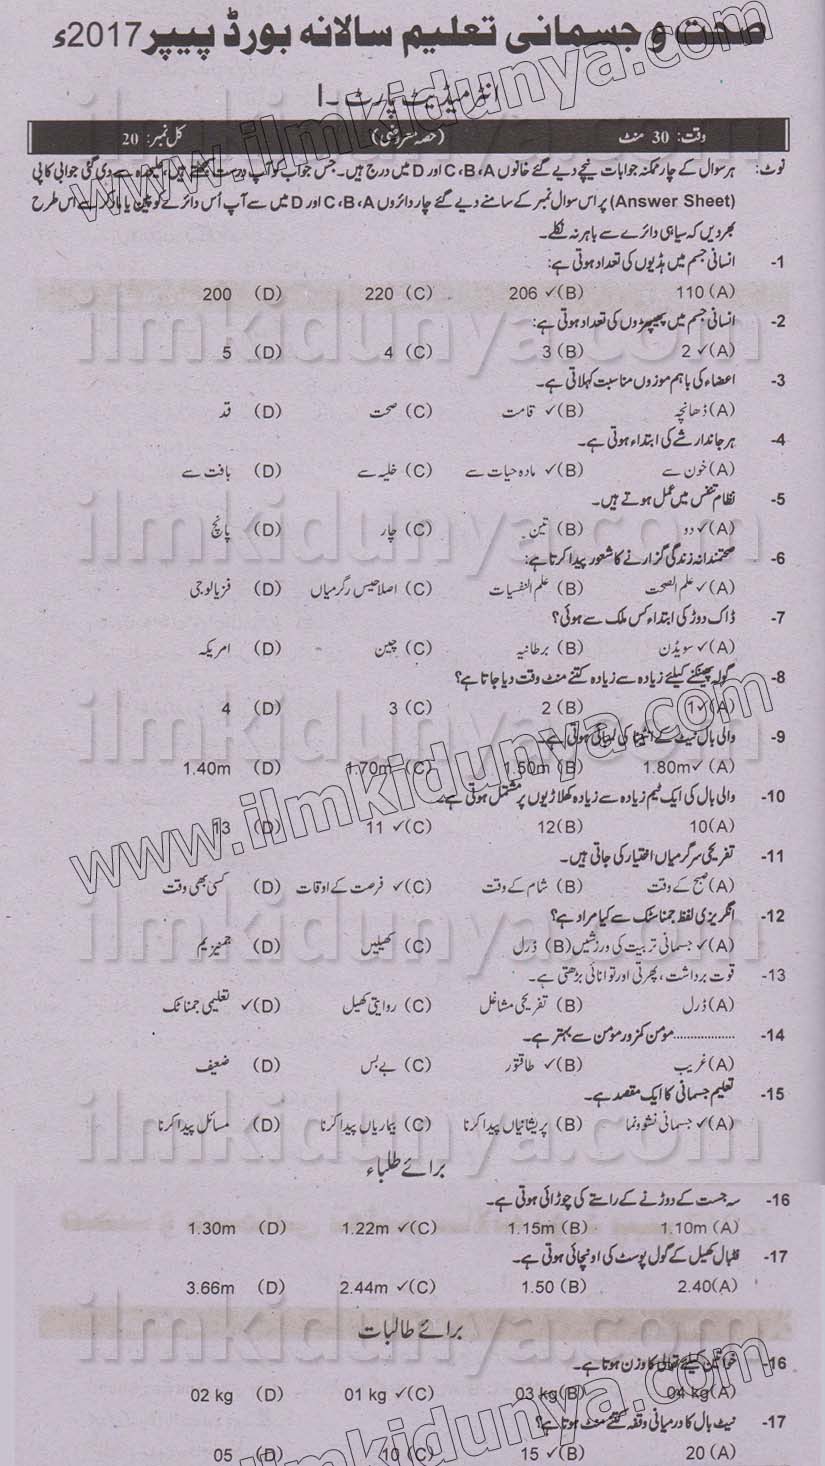 صحت و جسمانی تعلیم سالانہ بورڈ پیپر 2017ء
انٹرمیڈیٹ پارٹ ۔ I
وقت: 30 منٹ (حصہ معروضی) کل نمبر: 20
نوٹ: ہر سوال کے چار ممکنہ جوابات نیچے دیے گئے خانوں C،B،A اور D میں درج ہیں۔ جس جواب کو آپ درست سمجھتے ہیں، علیحدہ سے دی گئی جوابی کاپی
(Answer Sheet) پر اس سوال نمبر کے سامنے دیے گئے چار دائروں C،B،A اور D میں سے آپ اُس دائرے کو پین یا مارکر سے اس طرح
بھر دیں کہ سیاہی دائرے سے باہر نہ نکلے۔
1- انسانی جسم میں ہڈیوں کی تعداد ہوتی ہے:
(A) 110 (B)✓ 206 (C) 220 (D) 200
2- انسانی جسم میں پھیپھڑوں کی تعداد ہوتی ہے:
(A)✓ 2 (B) 3 (C) 4 (D) 5
3- اعضاء کی باہم موزوں مناسبت کہلاتی ہے۔
(A) ڈھانچہ (B)✓ قامت (C) صحت (D) قد
4- ہر جاندار شے کی ابتداء ہوتی ہے۔
(A) خون سے (B)✓ مادہ حیات سے (C) خلیہ سے (D) بافت سے
5- نظام تنفس میں عمل ہوتے ہیں۔
(A)✓ دو (B) تین (C) چار (D) پانچ
6- صحتمندانہ زندگی گزارنے کا شعور پیدا کرتا ہے:
(A)✓ علم الصحت (B) علم النفسیات (C) اصلاحیں رگرمیاں (D) فزیالوجی
7- ڈاک دوڑ کی ابتداء کس ملک سے ہوئی؟
(A)✓ سویڈن (B) برطانیہ (C) چین (D) امریکہ
8- گولہ پھینکنے کیلئے زیادہ سے زیادہ کتنے منٹ وقت دیا جاتا ہے؟
(A)✓ 1 (B) 2 (C) 3 (D) 4
9- والی بال نیٹ کے انٹینا کی لمبائی ہوتی ہے۔
(A) ✓1.80m (B) 1.50m (C) 1.70m (D) 1.40m
10- والی بال کی ایک ٹیم زیادہ سے زیادہ کھلاڑیوں پر مشتمل ہوتی ہے۔
(A) 10 (B) 12 (C)✓ 11 (D) 13
11- تفریحی سرگرمیاں اختیار کی جاتی ہیں۔
(A) صبح کے وقت (B) شام کے وقت (C)✓ فرصت کے اوقات (D) کسی بھی وقت
12- انگریزی لفظ جمناسٹک سے کیا مراد ہے؟
(A)✓ جسمانی تربیت کی ورزشیں (B) ڈرل (C) کھیلیں (D) جمنیزیم
13- قوت برداشت، پھرتی اور توانائی بڑھتی ہے۔
(A) ڈرل (B) تفریحی مشاغل (C) روایتی کھیل (D)✓ تعلیمی جمناٹک
14- ................. مومن کمزور مومن سے بہتر ہے۔
(A) غریب (B)✓ طاقتور (C) بے بس (D) ضعیف
15- تعلیم جسمانی کا ایک مقصد ہے۔
(A)✓ جسمانی نشوونما (B) پریشانیاں پیدا کرنا (C) بیماریاں پیدا کرنا (D) مسائل پیدا کرنا
برائے طلباء
16- سہ جست کے دوڑنے کے راستے کی چوڑائی ہوتی ہے۔
(A) 1.10m (B) 1.15m (C)✓ 1.22m (D) 1.30m
17- فٹبال کھیل کے گول پوسٹ کی اونچائی ہوتی ہے۔
(A) 2.40 (B) 1.50 (C)✓ 2.44m (D) 3.66m
برائے طالبات
16- خواتین کیلئے تھالی کا وزن ہوتا ہے۔
(A) 04 kg (B) 03 kg (C)✓ 01 kg (D) 02 kg
17- نیٹ بال کا درمیانی وقفہ کتنے منٹ ہوتا ہے؟
(A) 20 (B)✓ 15 (C) 10 (D) 05
www.ilmkidunya.com
ilmkidunya.com
ilmkidunya.com
ilmkidunya.com
ilmkidunya.com
www.ilmkidunya.com
ilmkidunya.com
ilmkidunya.com
ilmkidunya.com
www.ilmkidunya.com